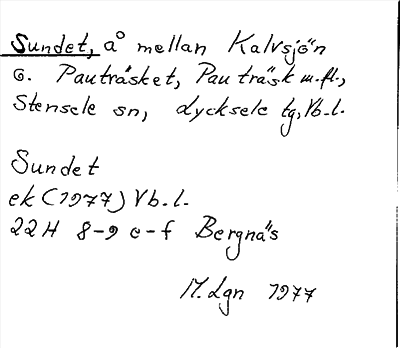 Sundet, å mellan Kalvsjön
o. Pauträsket, Pauträsk m.fl.,
Stensele sn, Lycksele tg, Vb.l.
Sundet
ek (1977) Vb.l.
22H 8-9 e-f Bergnäs
M.Lgn 1977